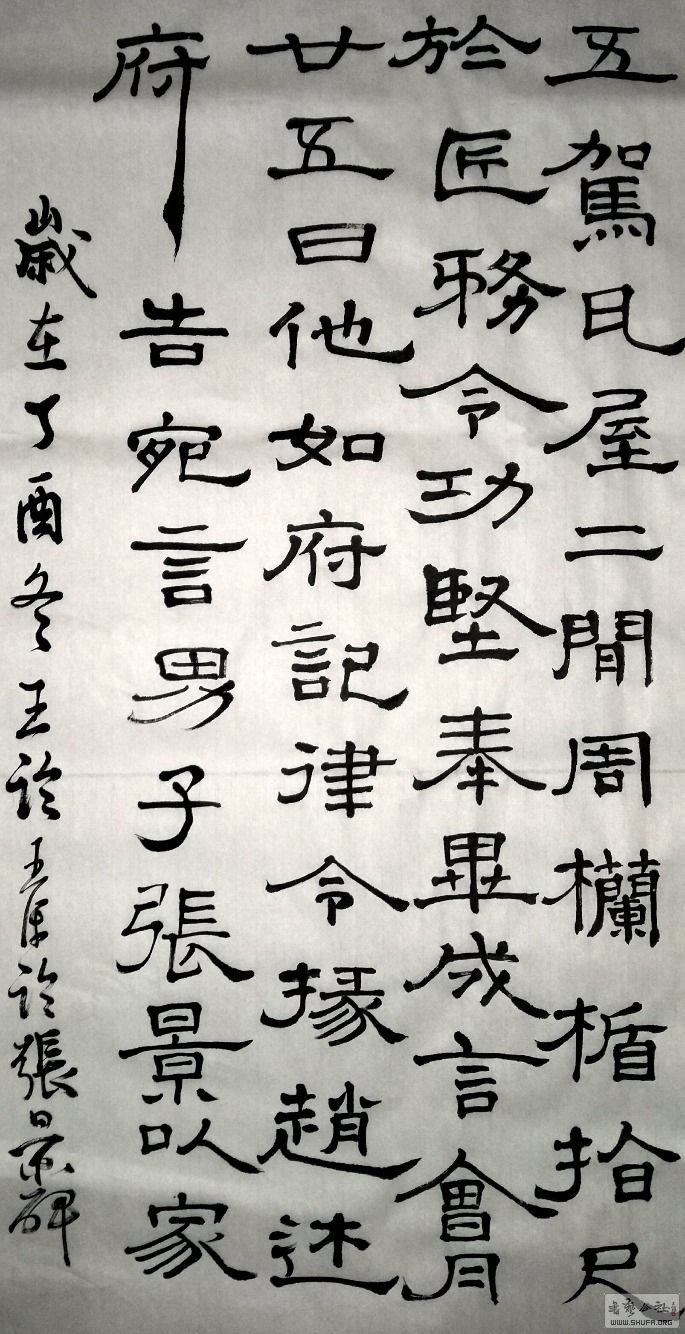 五駕瓦屋二間周欄楯拾尺
於匠務令功堅奉畢成言會月
廿五日他如府記律令掾趙述
府告宛言男子張景以家
歲在丁酉冬王張景碑
書藝公社
WWW.SHUFA.ORG